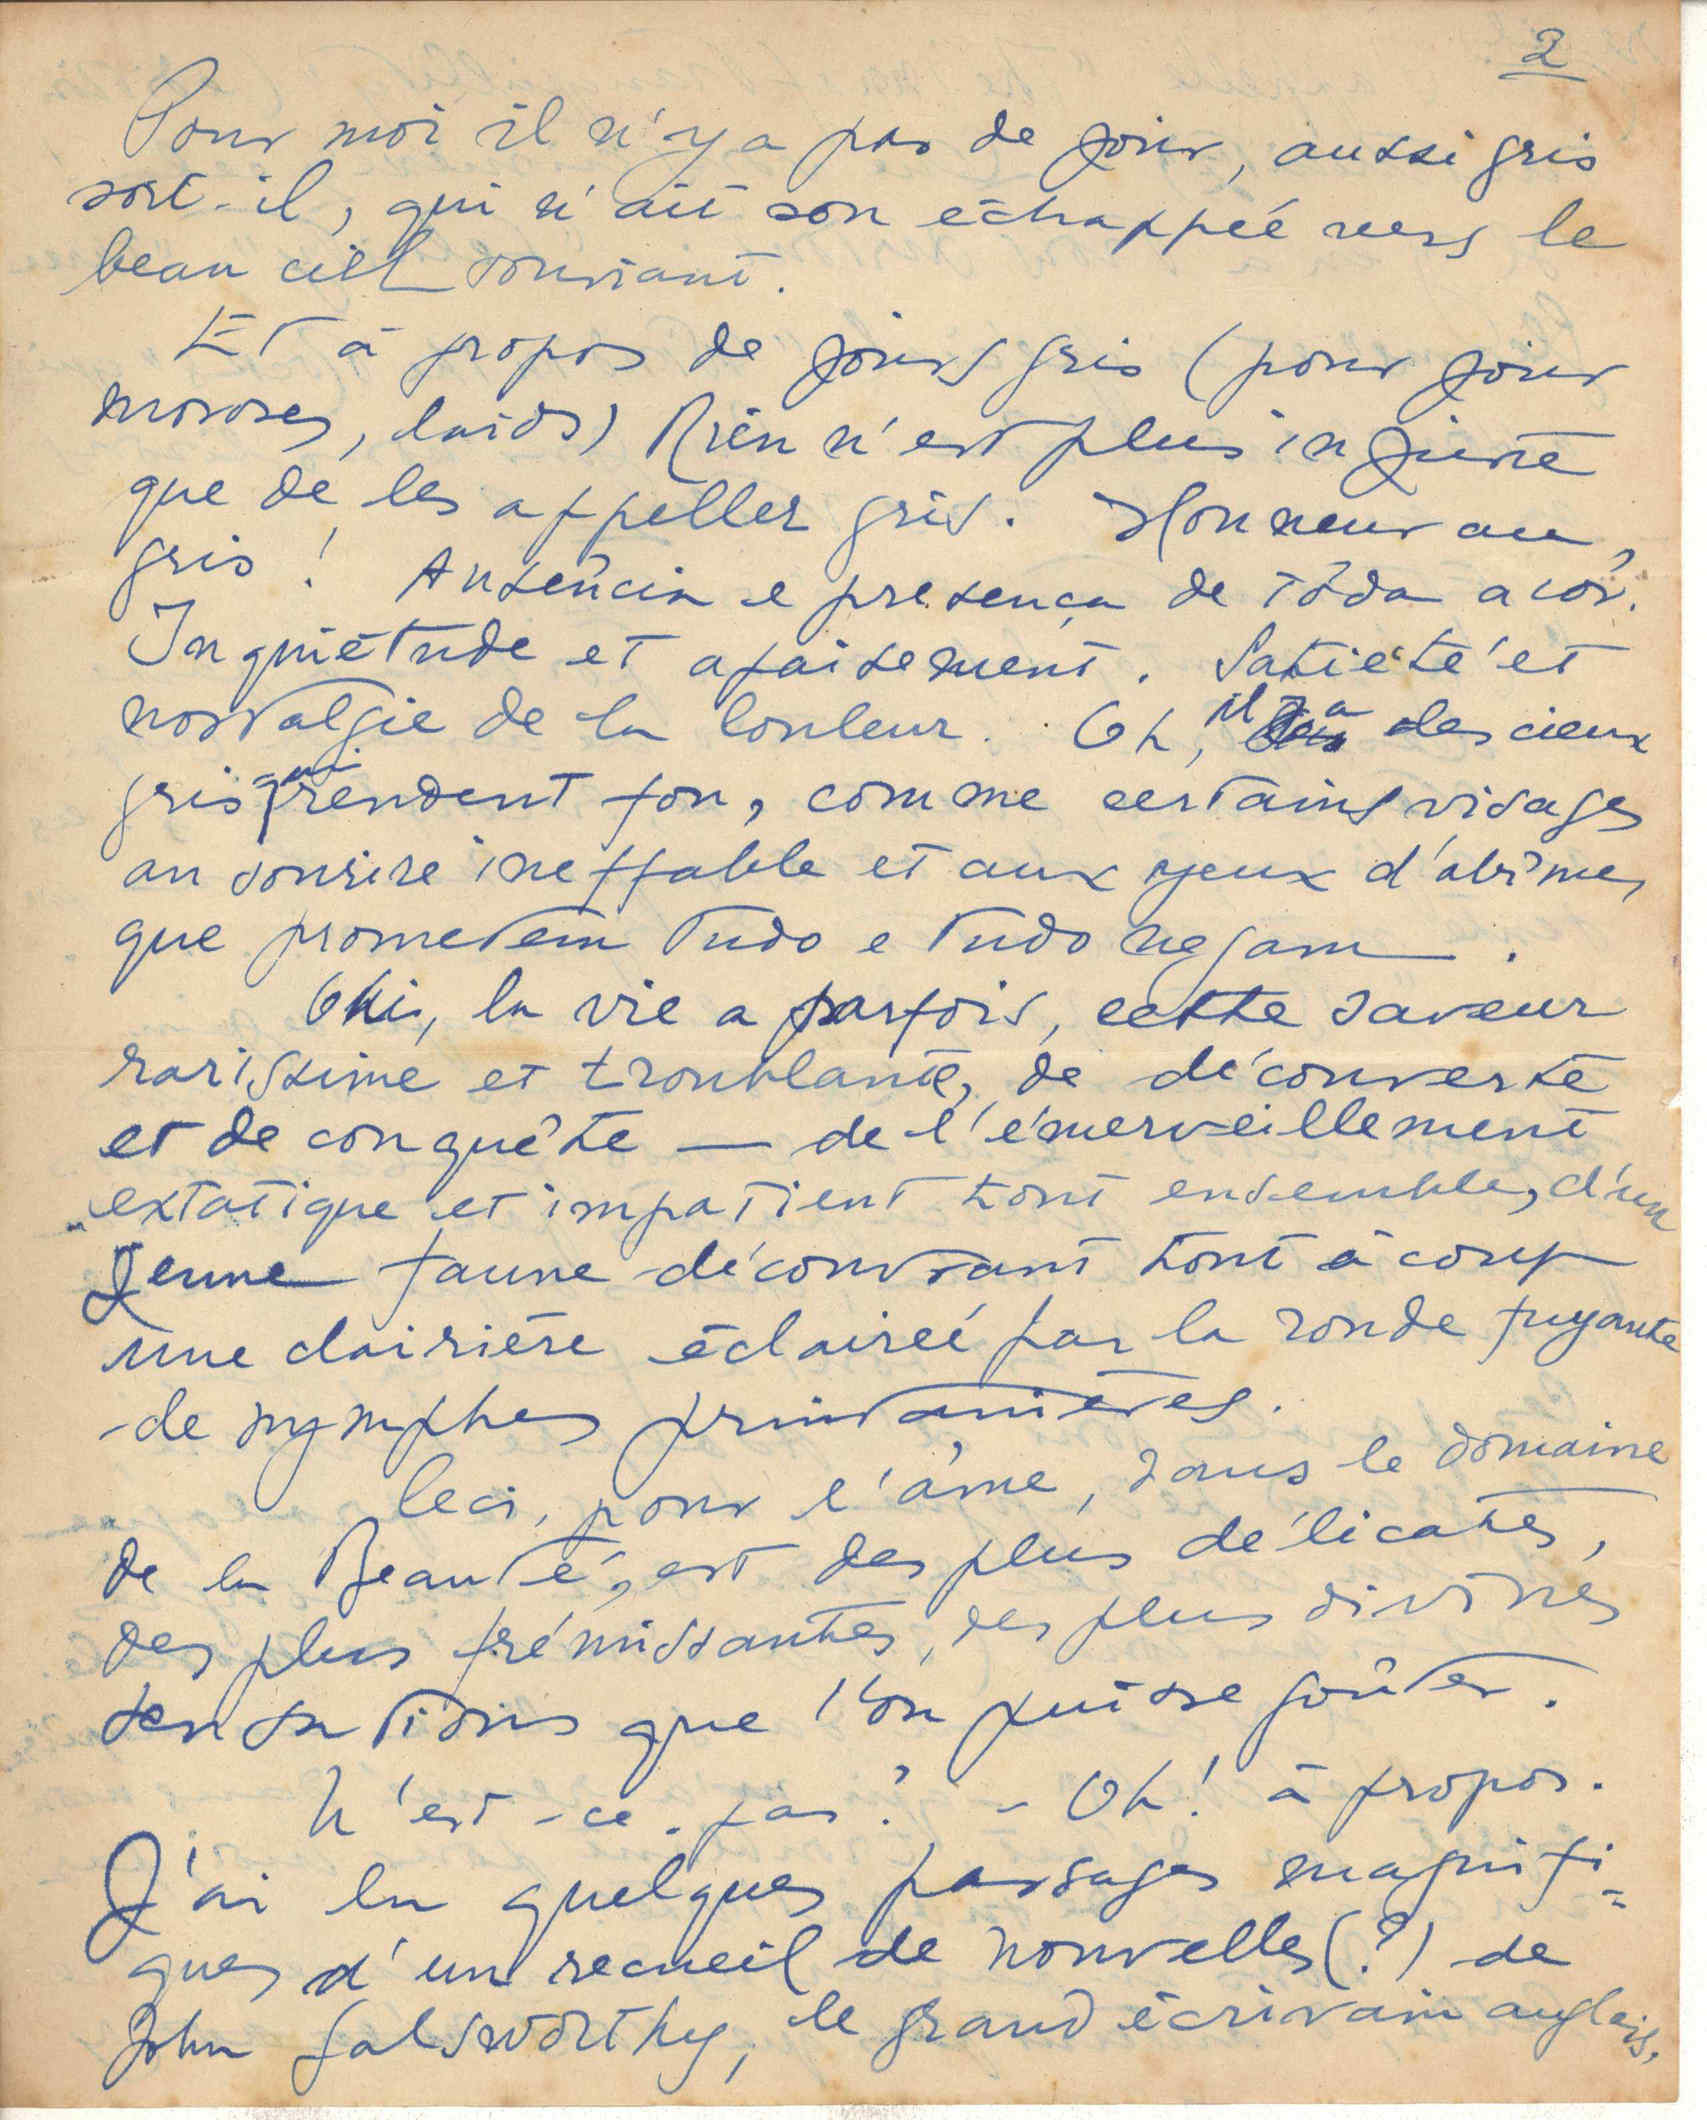 2
Pour moi il n'y a pas de jour, aussi gris
soit-il, qui n'ait son échappée vers le
beau ciel souriant.
Et à propos de jours gris (pour jour
moroses, laids) Rien n'est plus injuste
que de les appeller gris. Honneur au
gris ! Ausência e presença de tôda a côr.
Inquiétude et apaisement. Satiété et
nostalgie de la couleur. Oh, il y a des cieux
gris qui rendent fou, comme certains visages
au sourire ineffable et aux yeux d'abîme,
que prometem tudo e tudo negam.
Oui, la vie a parfois, cette saveur
rarissime et troublante, de découverte
et de conquête — de l'émerveillement
extatique et impatient tout ensemble, d'un
jeune faune découvrant tout à coup
une clairière éclairée par la ronde fuyante
de nymphes printanières.
Ceci, pour l'âme, dans le domaine
de la Beauté, est des plus délicates,
des plus frémissantes, des plus divines
sensations que l'on puisse goûter.
N'est-ce-pas ? - Oh ! à propos.
J'ai lu quelques passages magnifi=
ques d'un recueil de nouvelles (?) de
John Galsworthy, le grand écrivain anglais,